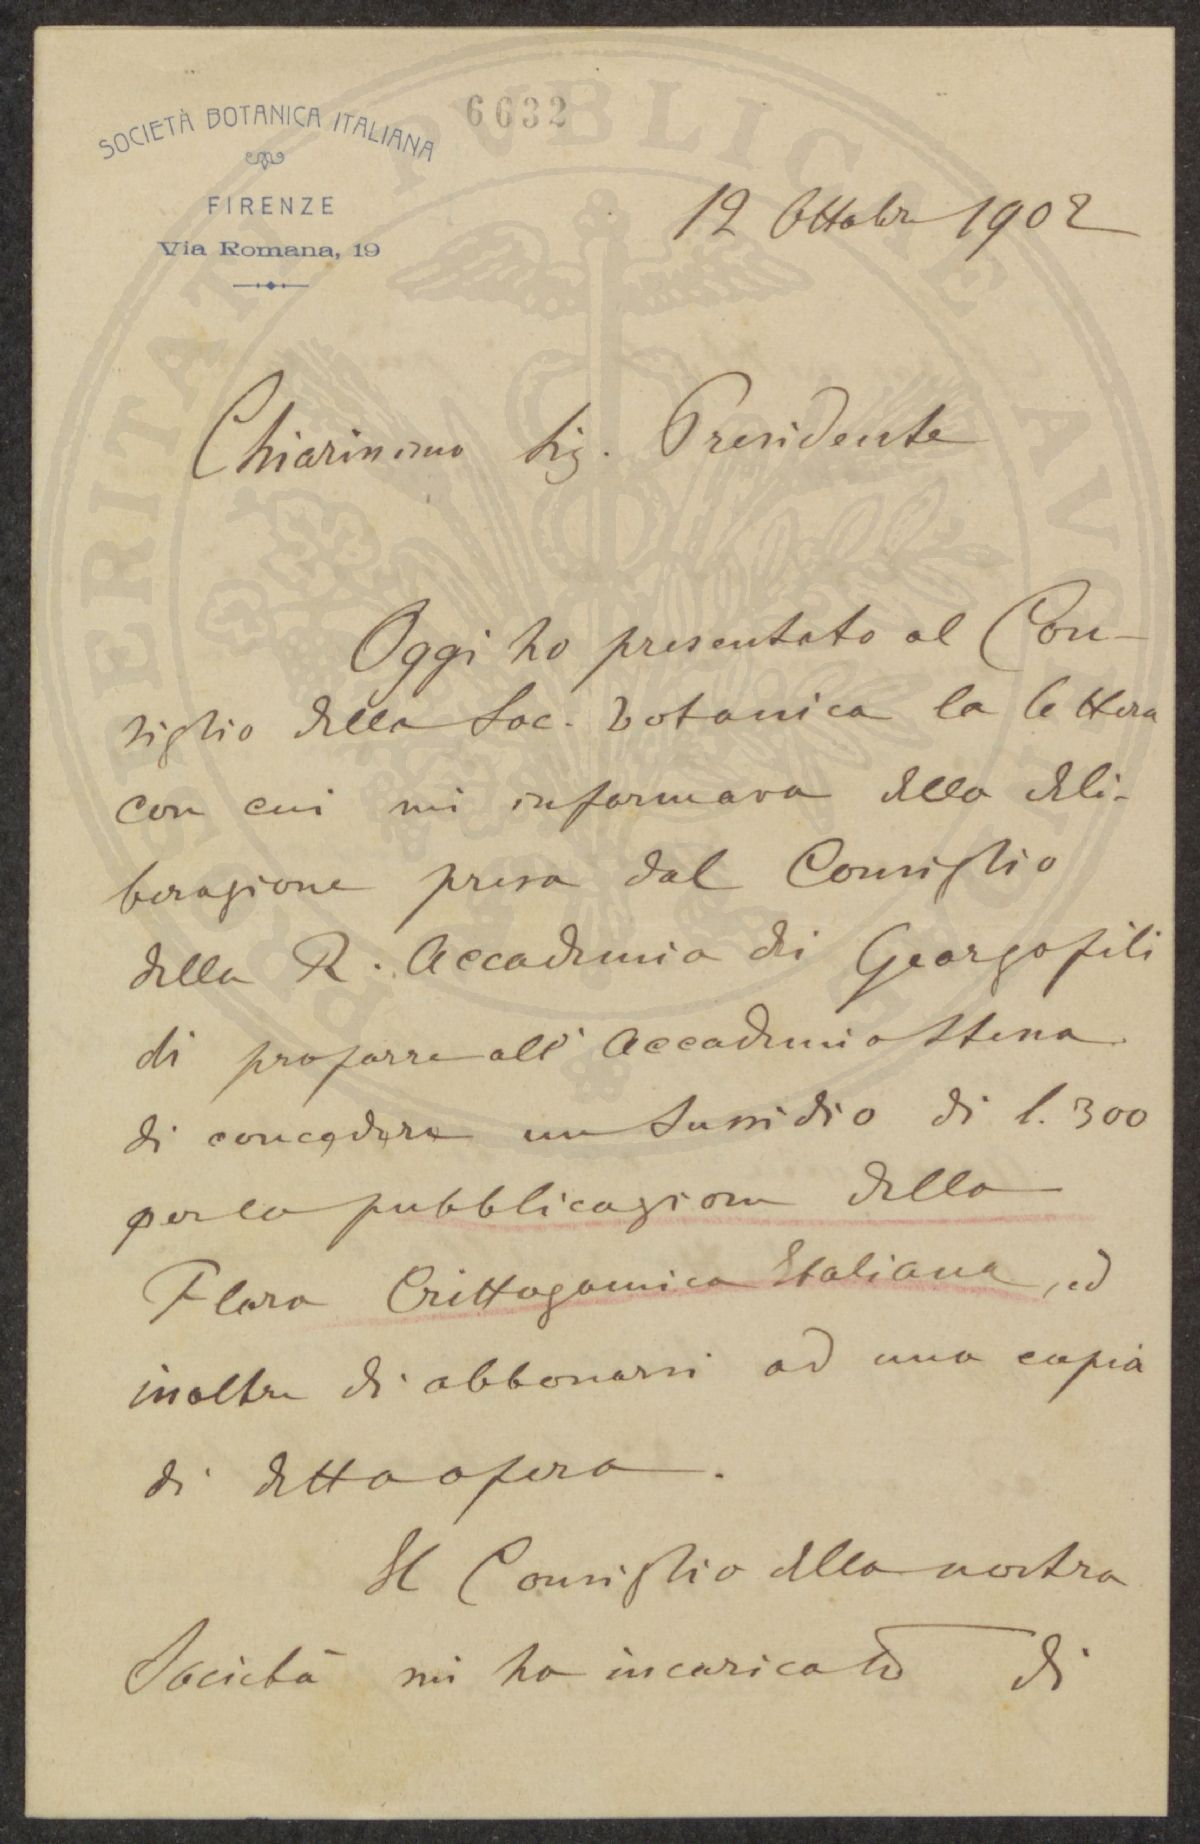 6632
SOCIETÀ BOTANICA ITALIANA
FIRENZE
Via Romana, 19
12 Ottobre 1902
Chiarissimo Sig. Presidente
Oggi ho presentato al Con-
siglio della Soc. botanica la lettera
con cui mi informava della deli-
berazione presa dal Consiglio
della R. Accademia dei Georgofili
di proporre all'Accademia stessa
di concedere un Sussidio di l. 300
per la pubblicazione della
Flora Crittogamica Italiana, ed
inoltre di abbonarsi ad una copia
di detta opera.
Il Consiglio della nostra
Società mi ha incaricato di
PROSPERITATI PUBLICAE AUGENDAE